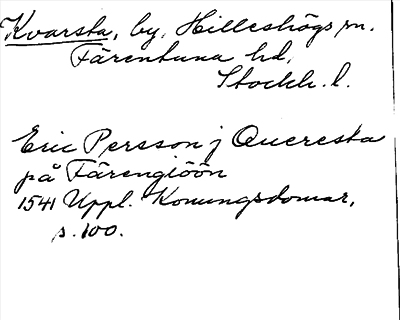 Kvarsta, by, Hilleshögs sn.
Färentuna hd,
Stockh. l.
Eric Persson j Queresta
på Färengiöön
1541 Uppl. Konungsdomar,
s. 100.